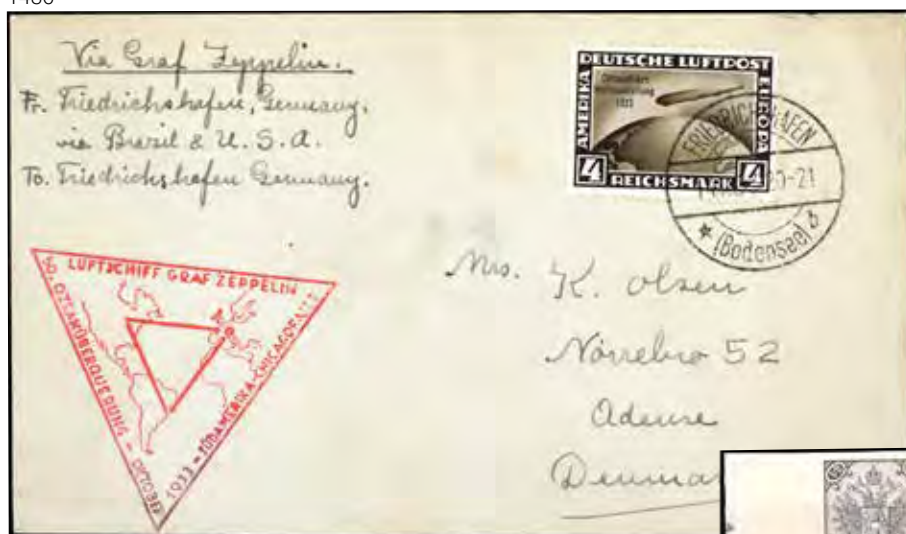 Via Graf Zeppelin.
Fr. Friedrichshafen, Germany.
via Brazil & U.S.A.
To. Friedrichshafen Germany.
DEUTSCHE LUFTPOST
AMERIKA
EUROPA
Chicagofahrt
Weltausstellung
1933
4 REICHSMARK 4
FRIEDRICHSHAFEN
20-21
(Bodensee)
LUFTSCHIFF GRAF ZEPPELIN
50. OZEANÜBERQUERUNG - OKTOBER
1933 - SÜDAMERIKA - CHICAGOFAHRT
Mrs. K. Olsen
Nörrebro 52
Odense
Denma